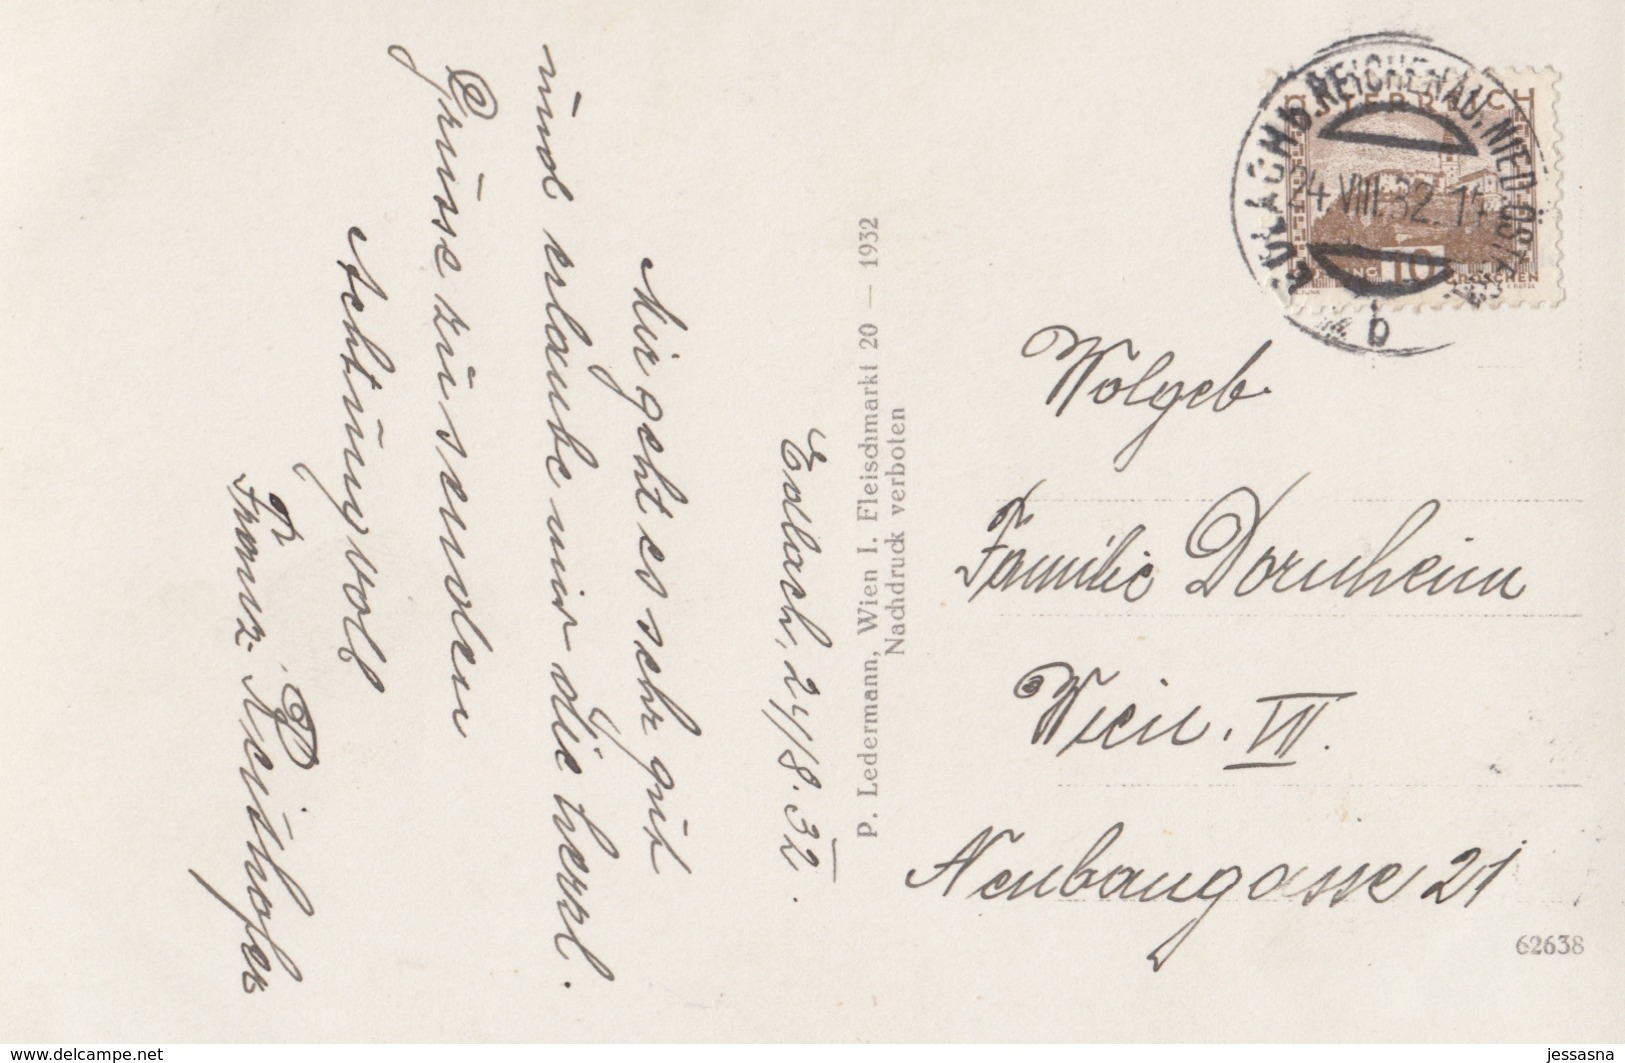 Edlach, 24/8. 32.
Mir geht es sehr gut
und erlaube mir die herzl.
Grüsse zu senden
Achtungsvoll
Franz Neithofer
P. Ledermann, Wien I. Fleischmarkt 20 — 1932
Nachdruck verboten
EDLACH B. REICHENAU, NIED. ÖST.
24. VIII. 32. 14
b
ÖSTERREICH
10
GROSCHEN
Wolgeb.
Familie Dornheim
Wien. VII.
Neubaugasse 21
62638
www.delcampe.net
jessasna